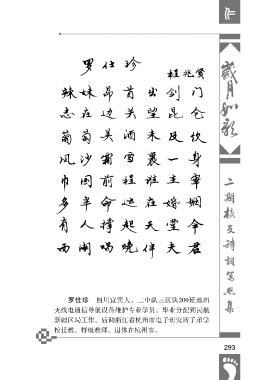 作
岁月如歌
二期校友诗词写照集
罗仕珍
程兆贤
辣妹昂首出剑门
志在边关望昆仑
葡萄美酒未及饮
风沙霜雪裹一身
巾帼前程谁主宰
多半命运在婚姻
有人撑起天堂伞
西湖唱晚伴夫君
罗仕珍 四川宜宾人,二中队三区队209班地面
无线电通信导航设备维护专业学员,毕业分配到民航
新疆区局工作。后调浙江省杭州市电子研究所子弟学
校任教、特级教师。退休在杭州市。
293